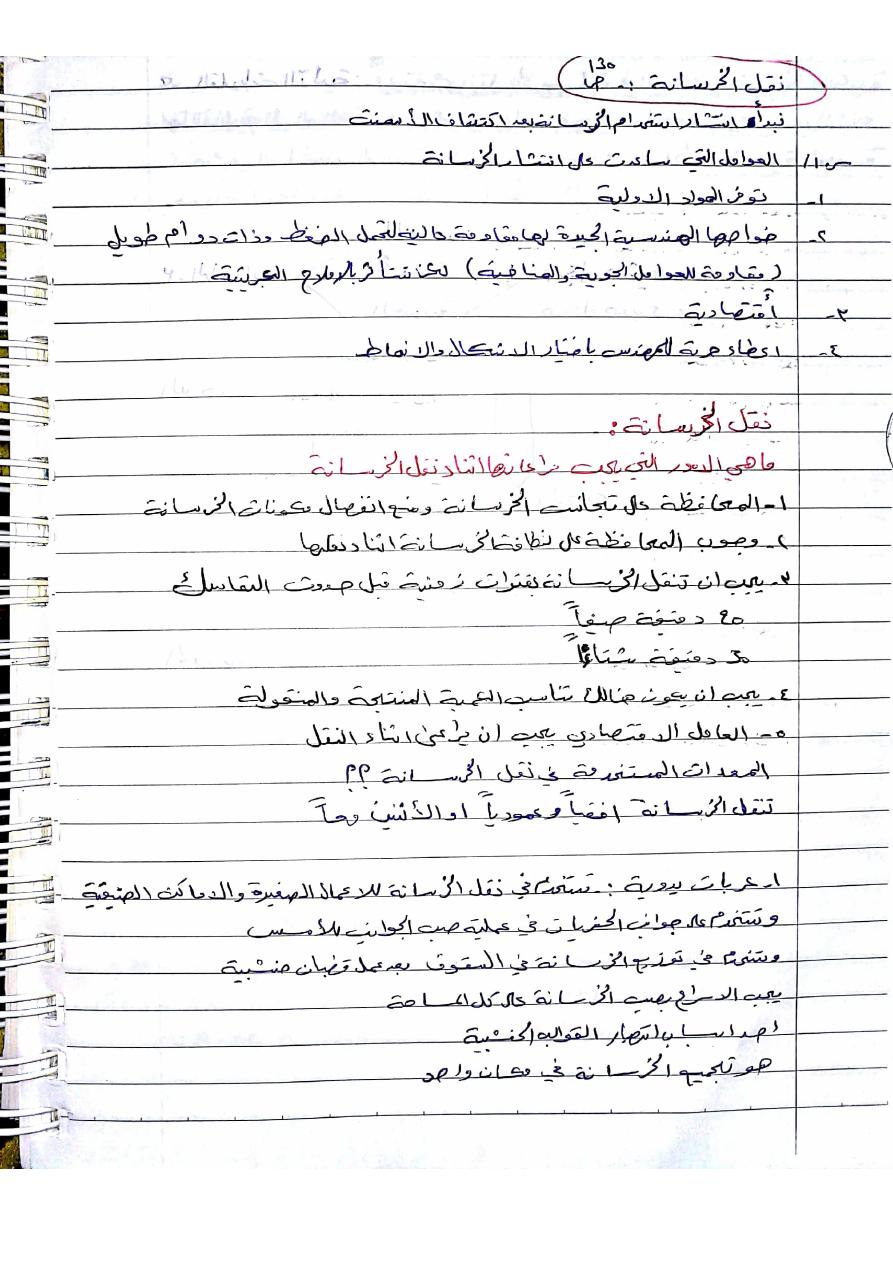 نقل الخرسانة :- ص 130
نبدأ انتشار استخدام الخرسانة بعد اكتشاف الأسمنت
س1/ العوامل التي ساعدت على انتشار الخرسانة
1- توفر المواد الاولية
2- خواصها الهندسية الجيدة لها مقاومة عالية لتحمل الضغط وذات دوام طويل
(مقاومة للعوامل الجوية والمناخية) لكن تتأثر بالاملاح الكبريتية
3- أقتصادية
4- اعطاء حرية للمهندس باختيار الاشكال والانماط
نقل الخرسانة :
ماهي الامور التي يجب مراعاتها اثناء نقل الخرسانة
1- المحافظة على تجانس الخرسانة ومنع انفصال مكونات الخرسانة
2- وجوب المحافظة على نظافة الخرسانة اثناء نقلها
3- يجب ان تنقل الخرسانة بفترات زمنية قبل حدوث التماسك
20 دقيقة صيفاً
30 دقيقة شتاءً
4- يجب ان يكون هنالك تناسب الكمية المنتجة والمنقولة
5- العامل الاقتصادي يجب ان يراعى اثناء النقل
المعدات المستخدمة في نقل الخرسانة ؟؟
تنقل الخرسانة افقياً وعمودياً او الأثنين معاً
1- عربات يدوية :- تستخدم في نقل الخرسانة للاعمال الصغيرة والاماكن الضيقة
وتستخدم على جوانب الحفريات في عملية صب الجوانب للأسس
وتستخدم في توزيع الخرسانة في السقوف بعد عمل قضبان خشبية
يجب الاسراع بصب الخرسانة على كل المساحة
احد اسباب انهيار القوالب الخشبية
هو تجميع الخرسانة في مكان واحد